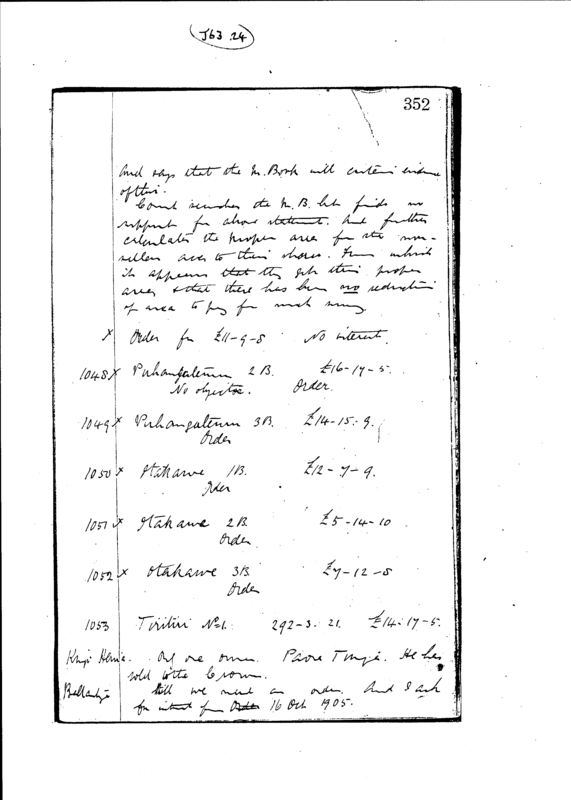 J63.24
352
And says that the M. Book will contain evidence
of this.
Court searches the M.B. but finds no
support for above statement. And further
calculates the proper area for the non-
sellers acc to their shares. From which
it appears that they get their proper
area & that there has been no reduction
of area to pay for
x Order for £11-9-8 No interest.
1048 x Puhangatenum 2B. £16-17-5.
No objectn. Order.
1049 x Puhangatenum 3B. £14-15-9.
Order
1050 x Otakawe 1B. £12-7-9.
Order
1051 x Otakawe 2B £5-14-10
Order
1052 x Otakawe 3B £7-12-8
Order
1053 Tiritiri No1. 292-3.21. £14-17-5.
Kingi one owner. He has
sold to the Crown.
still we want an order. And I ask
for interest from Order 16 Oct 1905.